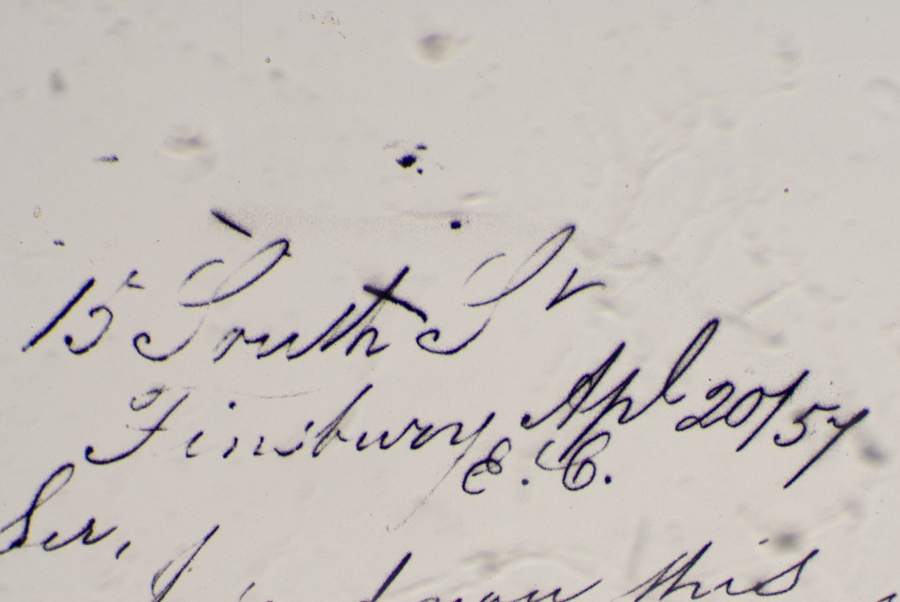 15 South St
Finsbury Apl 20/57
E.C.
Sir,
this